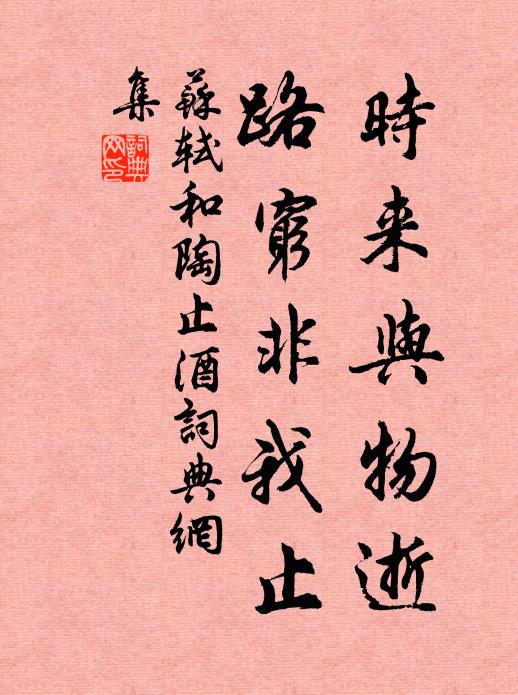 時来與物逝
路窮非我止
蘇軾和陶止酒詞典網
集
詞典
网印